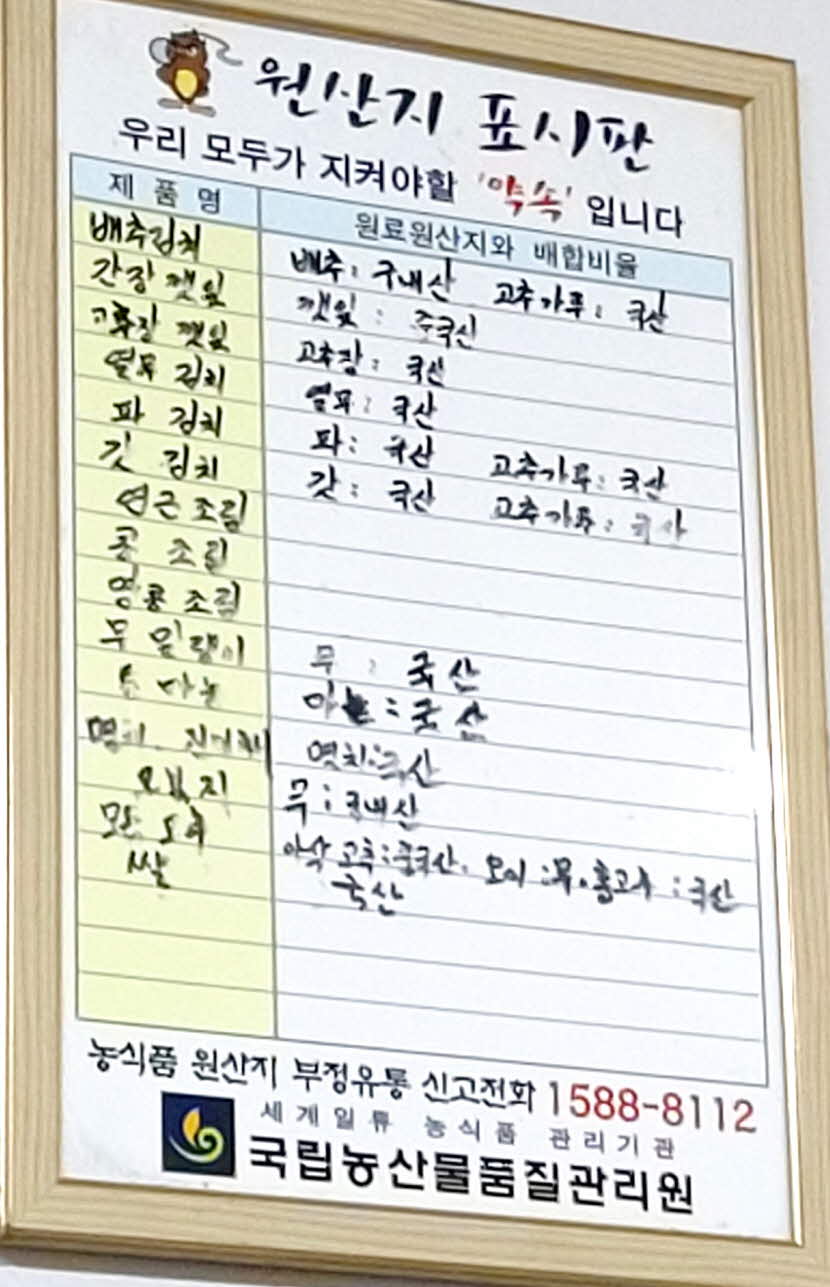 원산지 표시판
우리 모두가 지켜야할 '약속' 입니다
제 품 명 원료원산지와 배합비율
배추김치 배추: 국내산 고추가루: 국산
간장 깻잎 깻잎: 중국산
고추장 깻잎 고추장: 국산
열무 김치 열무: 국산
파 김치 파: 국산 고추가루: 국산
갓 김치 갓: 국산 고추가루: 국산
연근 조림
콩 조림
땅콩 조림
무 말랭이 무: 국산
마늘 마늘: 국산
멸치: 국산
오복지 무: 국내산
모듬 아삭고추: 중국산. 오이: 무. 홍고추: 국산
쌀 국산
농식품 원산지 부정유통 신고전화 1588-8112
세계일류 농식품 관리기관
국립농산물품질관리원